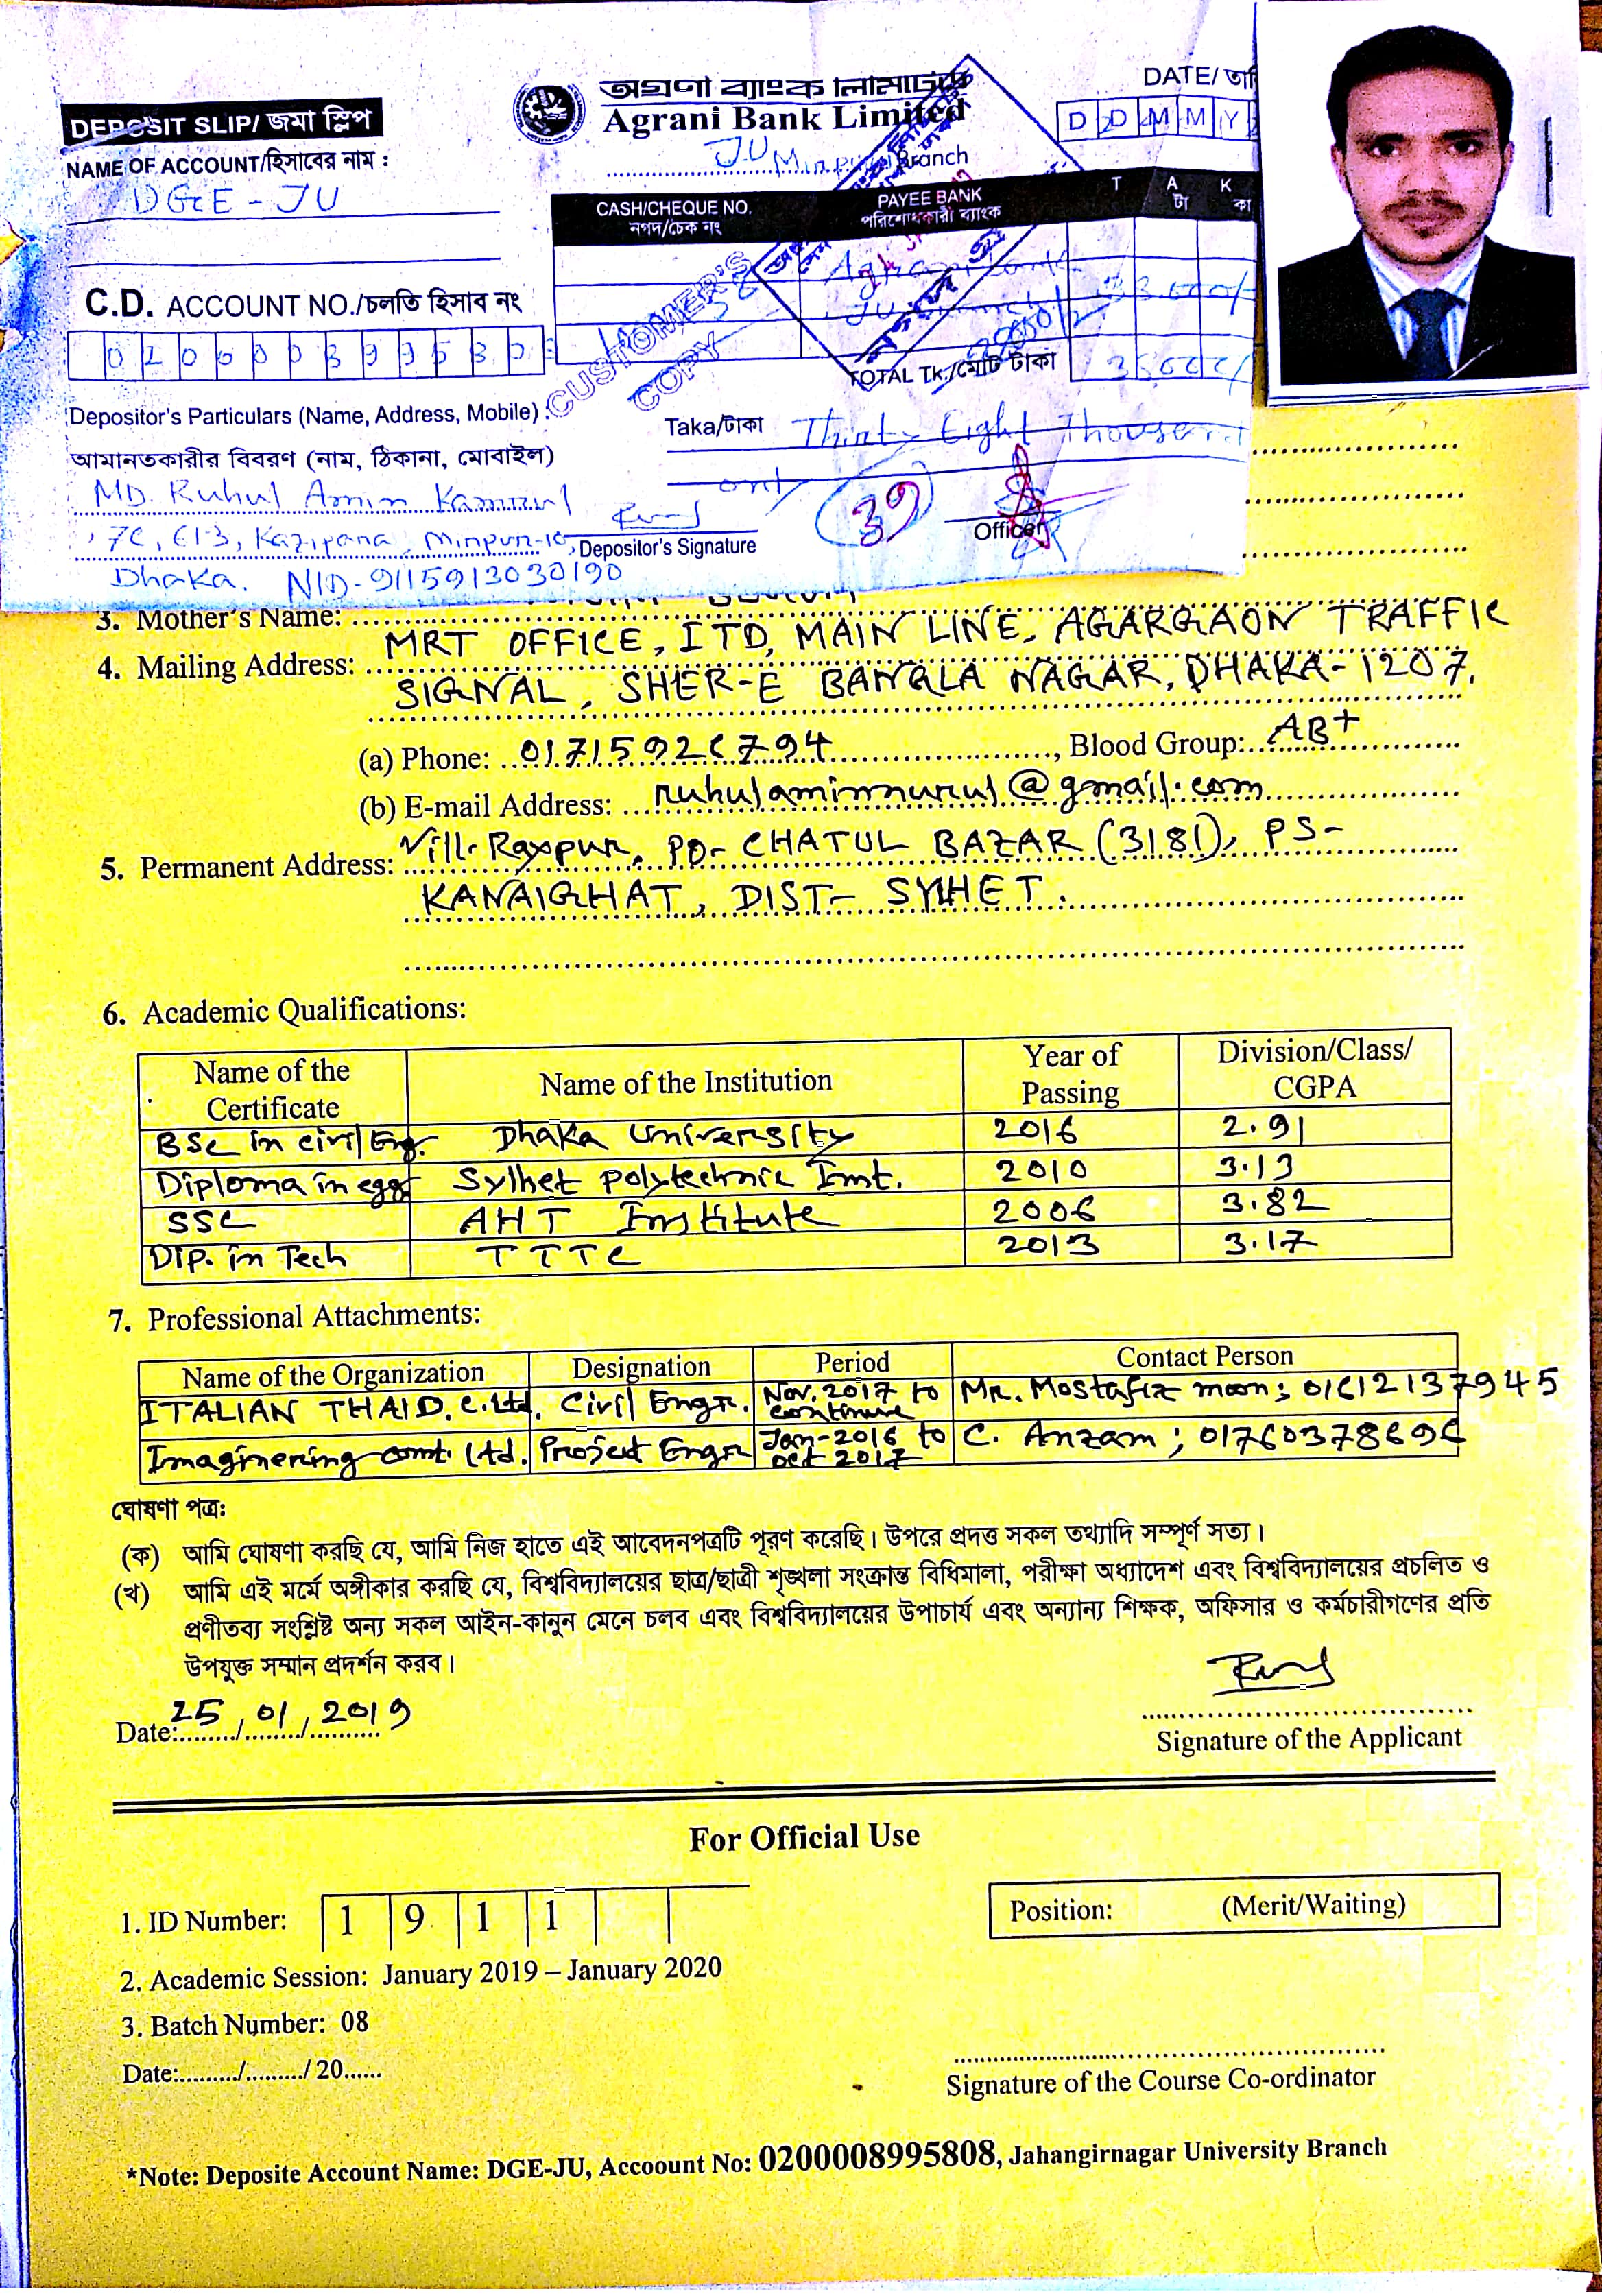 DEPOSIT SLIP/ জমা স্লিপ
অগ্রণী ব্যাংক লিমিটেড
Agrani Bank Limited
DATE/
D D M M Y
NAME OF ACCOUNT/হিসাবের নাম :
DGE - JU
JU Branch
CASH/CHEQUE NO.
নগদ/চেক নং
PAYEE BANK
পরিশোধকারী ব্যাংক
T A K
টা কা
Agrani
JU
C.D. ACCOUNT NO./চলতি হিসাব নং
CUSTOMER'S
COPY
TOTAL TK./মোট টাকা
Depositor's Particulars (Name, Address, Mobile) :
আমানতকারীর বিবরণ (নাম, ঠিকানা, মোবাইল)
Taka/টাকা Thirty Eight Thousand
only
39
MD. Ruhul Amin
Kazipara, Mirpur-10,
Depositor's Signature
Officer
Dhaka. NID-9115913030190
3. Mother's Name:
4. Mailing Address: MRT OFFICE, ITD, MAIN LINE, AGARGAON TRAFFIC
SIGNAL, SHER-E BANGLA NAGAR, DHAKA-1207.
(a) Phone: 01715926794, Blood Group: AB+
(b) E-mail Address: ruhulaminnurul@gmail.com
5. Permanent Address: Vill- Raypur, PO- CHATUL BAZAR (3181), PS-
KANAIGHAT, DIST- SYLHET.
6. Academic Qualifications:
Name of the Certificate Name of the Institution Year of Passing Division/Class/ CGPA
BSc in civil Eng. Dhaka University 2016 2.91
Diploma in egg Sylhet Polytechnic Inst. 2010 3.13
SSC AHT Institute 2006 3.82
Dip. in Tech TTTC 2013 3.17
7. Professional Attachments:
Name of the Organization Designation Period Contact Person
ITALIAN THAI D. C. Ltd. Civil Engr. Nov. 2017 to continue MR. Mostafiz moon; 01612137945
Imaginering const. Ltd. Project Engr Jan-2016 to oct 2017 C. Anzam; 01760378696
ঘোষণা পত্র:
(ক) আমি ঘোষণা করছি যে, আমি নিজ হাতে এই আবেদনপত্রটি পূরণ করেছি। উপরে প্রদত্ত সকল তথ্যাদি সম্পূর্ণ সত্য।
(খ) আমি এই মর্মে অঙ্গীকার করছি যে, বিশ্ববিদ্যালয়ের ছাত্র/ছাত্রী শৃঙ্খলা সংক্রান্ত বিধিমালা, পরীক্ষা অধ্যাদেশ এবং বিশ্ববিদ্যালয়ের প্রচলিত ও
প্রণীতব্য সংশ্লিষ্ট অন্য সকল আইন-কানুন মেনে চলব এবং বিশ্ববিদ্যালয়ের উপাচার্য এবং অন্যান্য শিক্ষক, অফিসার ও কর্মচারীগণের প্রতি
উপযুক্ত সম্মান প্রদর্শন করব।
Date: 25/01/2019
Signature of the Applicant
For Official Use
1. ID Number: 1 9 1 1
Position: (Merit/Waiting)
2. Academic Session: January 2019 – January 2020
3. Batch Number: 08
Date:........./........./ 20......
Signature of the Course Co-ordinator
*Note: Deposite Account Name: DGE-JU, Accoount No: 0200008995808, Jahangirnagar University Branch